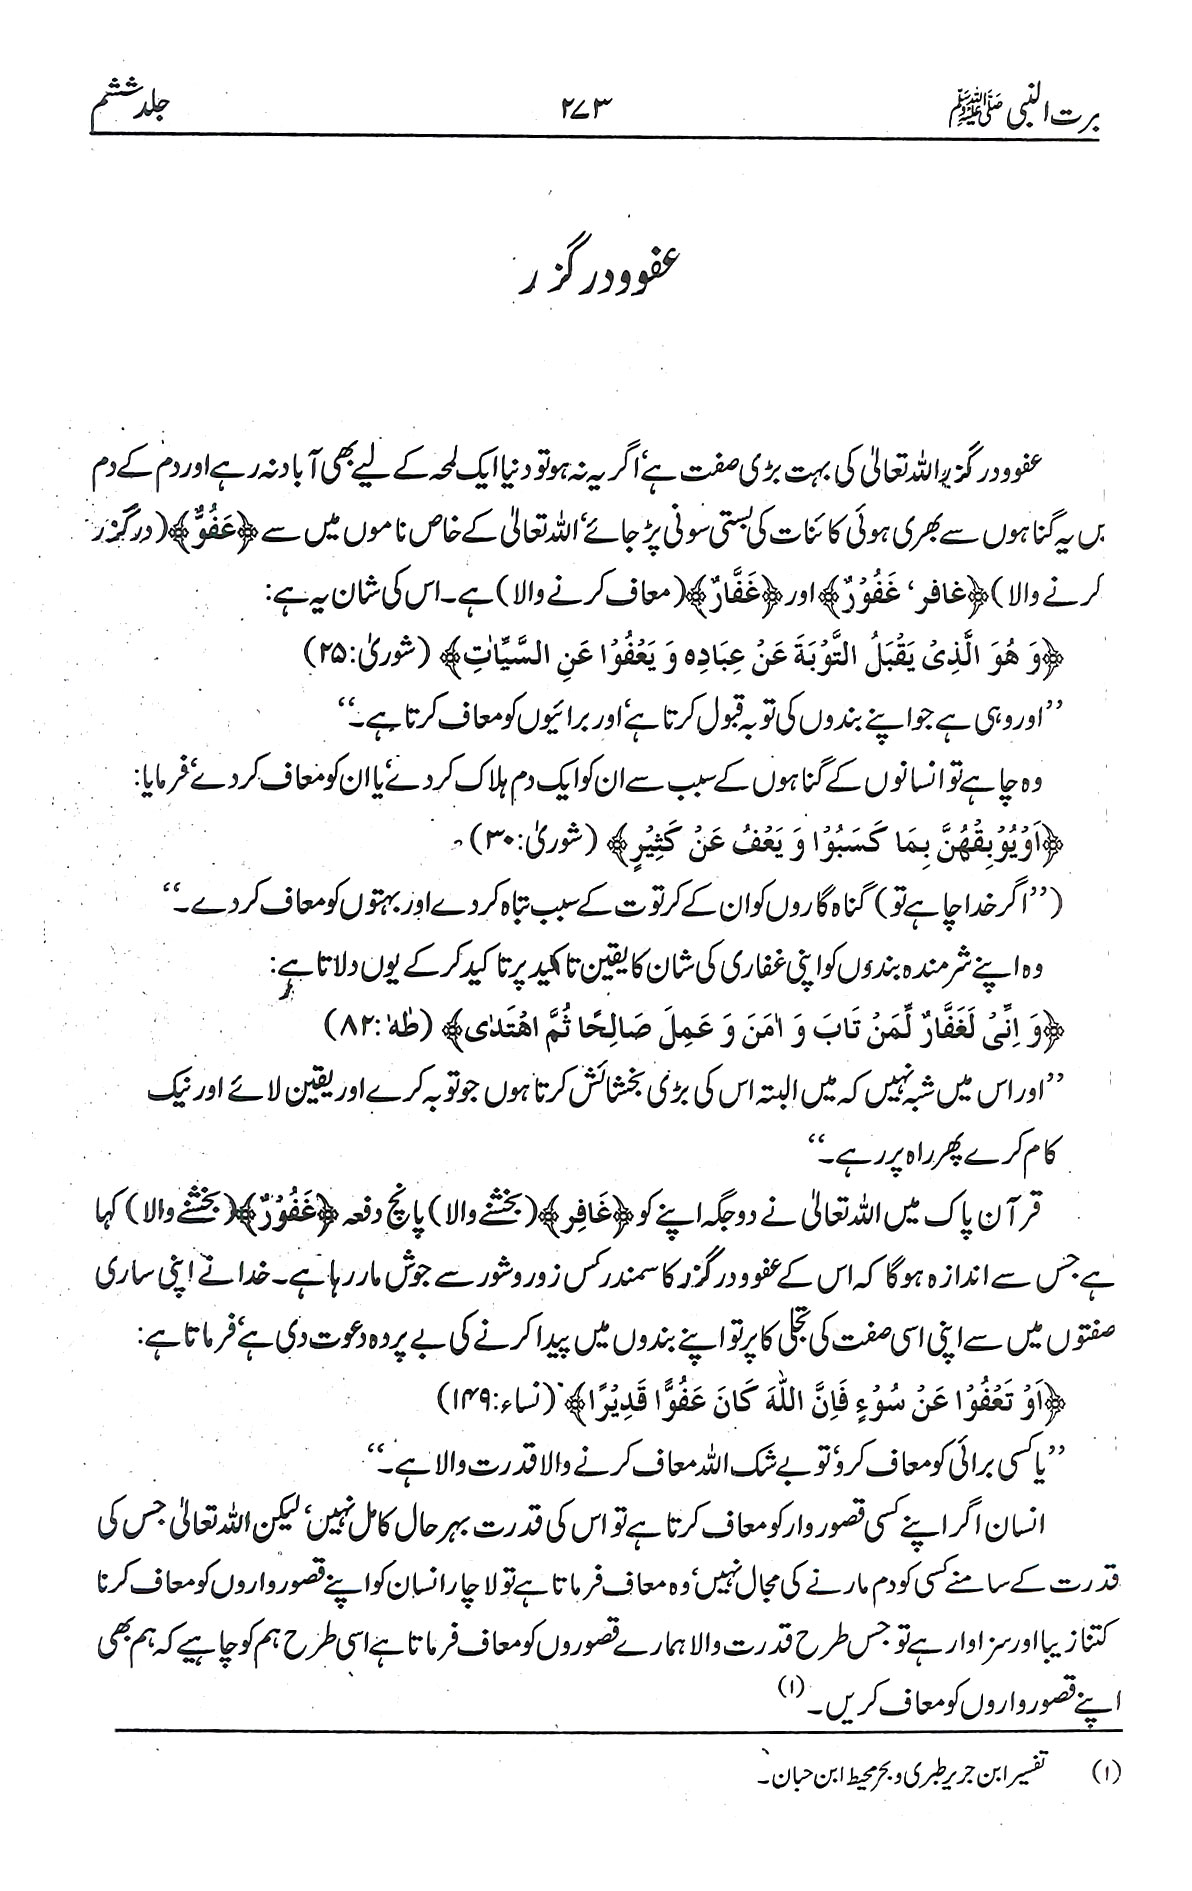 برت النبی ﷺ ۲۷۳ جلد ششم
عفوودرگزر
عفوودرگزر اللہ تعالیٰ کی بہت بڑی صفت ہے‘ اگر یہ نہ ہوتو دنیا ایک لمحہ کے لیے بھی آباد نہ رہے اور دم کے دم
یں یہ گناہوں سے بھری ہوئی کائنات کی بستی سونی پڑ جائے‘ اللہ تعالیٰ کے خاص ناموں میں سے ﴿عَفُوٌّ﴾ (درگزر
کرنے والا) ﴿غافر‘ غَفُوْرٌ﴾ اور ﴿غَفَّارٌ﴾ (معاف کرنے والا) ہے۔ اس کی شان یہ ہے:
﴿وَ هُوَ الَّذِیْ یَقْبَلُ التَّوْبَةَ عَنْ عِبَادِهٖ وَ یَعْفُوْا عَنِ السَّیِّاٰتِ﴾ (شوریٰ:۲۵)
’’اور وہی ہے جو اپنے بندوں کی توبہ قبول کرتا ہے‘ اور برائیوں کو معاف کرتا ہے۔‘‘
وہ چاہے تو انسانوں کے گناہوں کے سبب سے ان کو ایک دم ہلاک کر دے‘ یا ان کو معاف کر دے‘ فرمایا:
﴿اَوْیُوْبِقْهُنَّ بِمَا كَسَبُوْا وَ یَعْفُ عَنْ كَثِیْرٍ﴾ (شوریٰ:۳۰)
(’’اگر خدا چاہے تو) گناہ گاروں کو ان کے کرتوت کے سبب تباہ کر دے اور بہتوں کو معاف کر دے۔‘‘
وہ اپنے شرمندہ بندوں کو اپنی غفاری کی شان کا یقین تاکید پر تاکید کر کے یوں دلاتا ہے:
﴿وَ اِنِّیْ لَغَفَّارٌ لِّمَنْ تَابَ وَ اٰمَنَ وَ عَمِلَ صَالِحًا ثُمَّ اهْتَدٰی﴾ (طٰہٰ:۸۲)
’’اور اس میں شبہ نہیں کہ میں البتہ اس کی بڑی بخشائش کرتا ہوں جو توبہ کرے اور یقین لائے اور نیک
کام کرے پھر راہ پر رہے۔‘‘
قرآن پاک میں اللہ تعالیٰ نے دوجگہ اپنے کو ﴿غَافِر﴾ (بخشنے والا) پانچ دفعہ ﴿غَفُوْرٌ﴾ (بخشنے والا) کہا
ہے جس سے اندازہ ہوگا کہ اس کے عفوودرگزر کا سمندر کس زور و شور سے جوش مار رہا ہے۔ خدا نے اپنی ساری
صفتوں میں سے اپنی اسی صفت کی تجلی کا پرتو اپنے بندوں میں پیدا کرنے کی بے پردہ دعوت دی ہے‘ فرماتا ہے:
﴿اَوْ تَعْفُوْا عَنْ سُوْءٍ فَاِنَّ اللّٰهَ كَانَ عَفُوًّا قَدِیْرًا﴾ (نساء:۱۴۹)
’’یا کسی برائی کو معاف کرو‘ تو بے شک اللہ معاف کرنے والا قدرت والا ہے۔‘‘
انسان اگر اپنے کسی قصوروار کو معاف کرتا ہے تو اس کی قدرت بہرحال کامل نہیں‘ لیکن اللہ تعالیٰ جس کی
قدرت کے سامنے کسی کو دم مارنے کی مجال نہیں‘ وہ معاف فرماتا ہے تو لاچار انسان کو اپنے قصورواروں کو معاف کرنا
کتنا زیبا اور سزاوار ہے تو جس طرح قدرت والا ہمارے قصوروں کو معاف فرماتا ہے اسی طرح ہم کو چاہیے کہ ہم بھی
اپنے قصورواروں کو معاف کریں۔(۱)
(۱) تفسیر ابن جریر طبری و بحر محیط ابن حبان۔